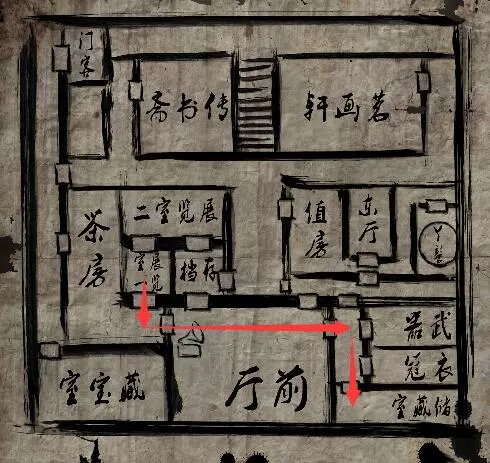 门客
传书斋
茗画轩
茶房
展览室二
值房
东厅
丫鬟
展览室一
存档
武器
衣冠
储藏室
藏宝室
前厅